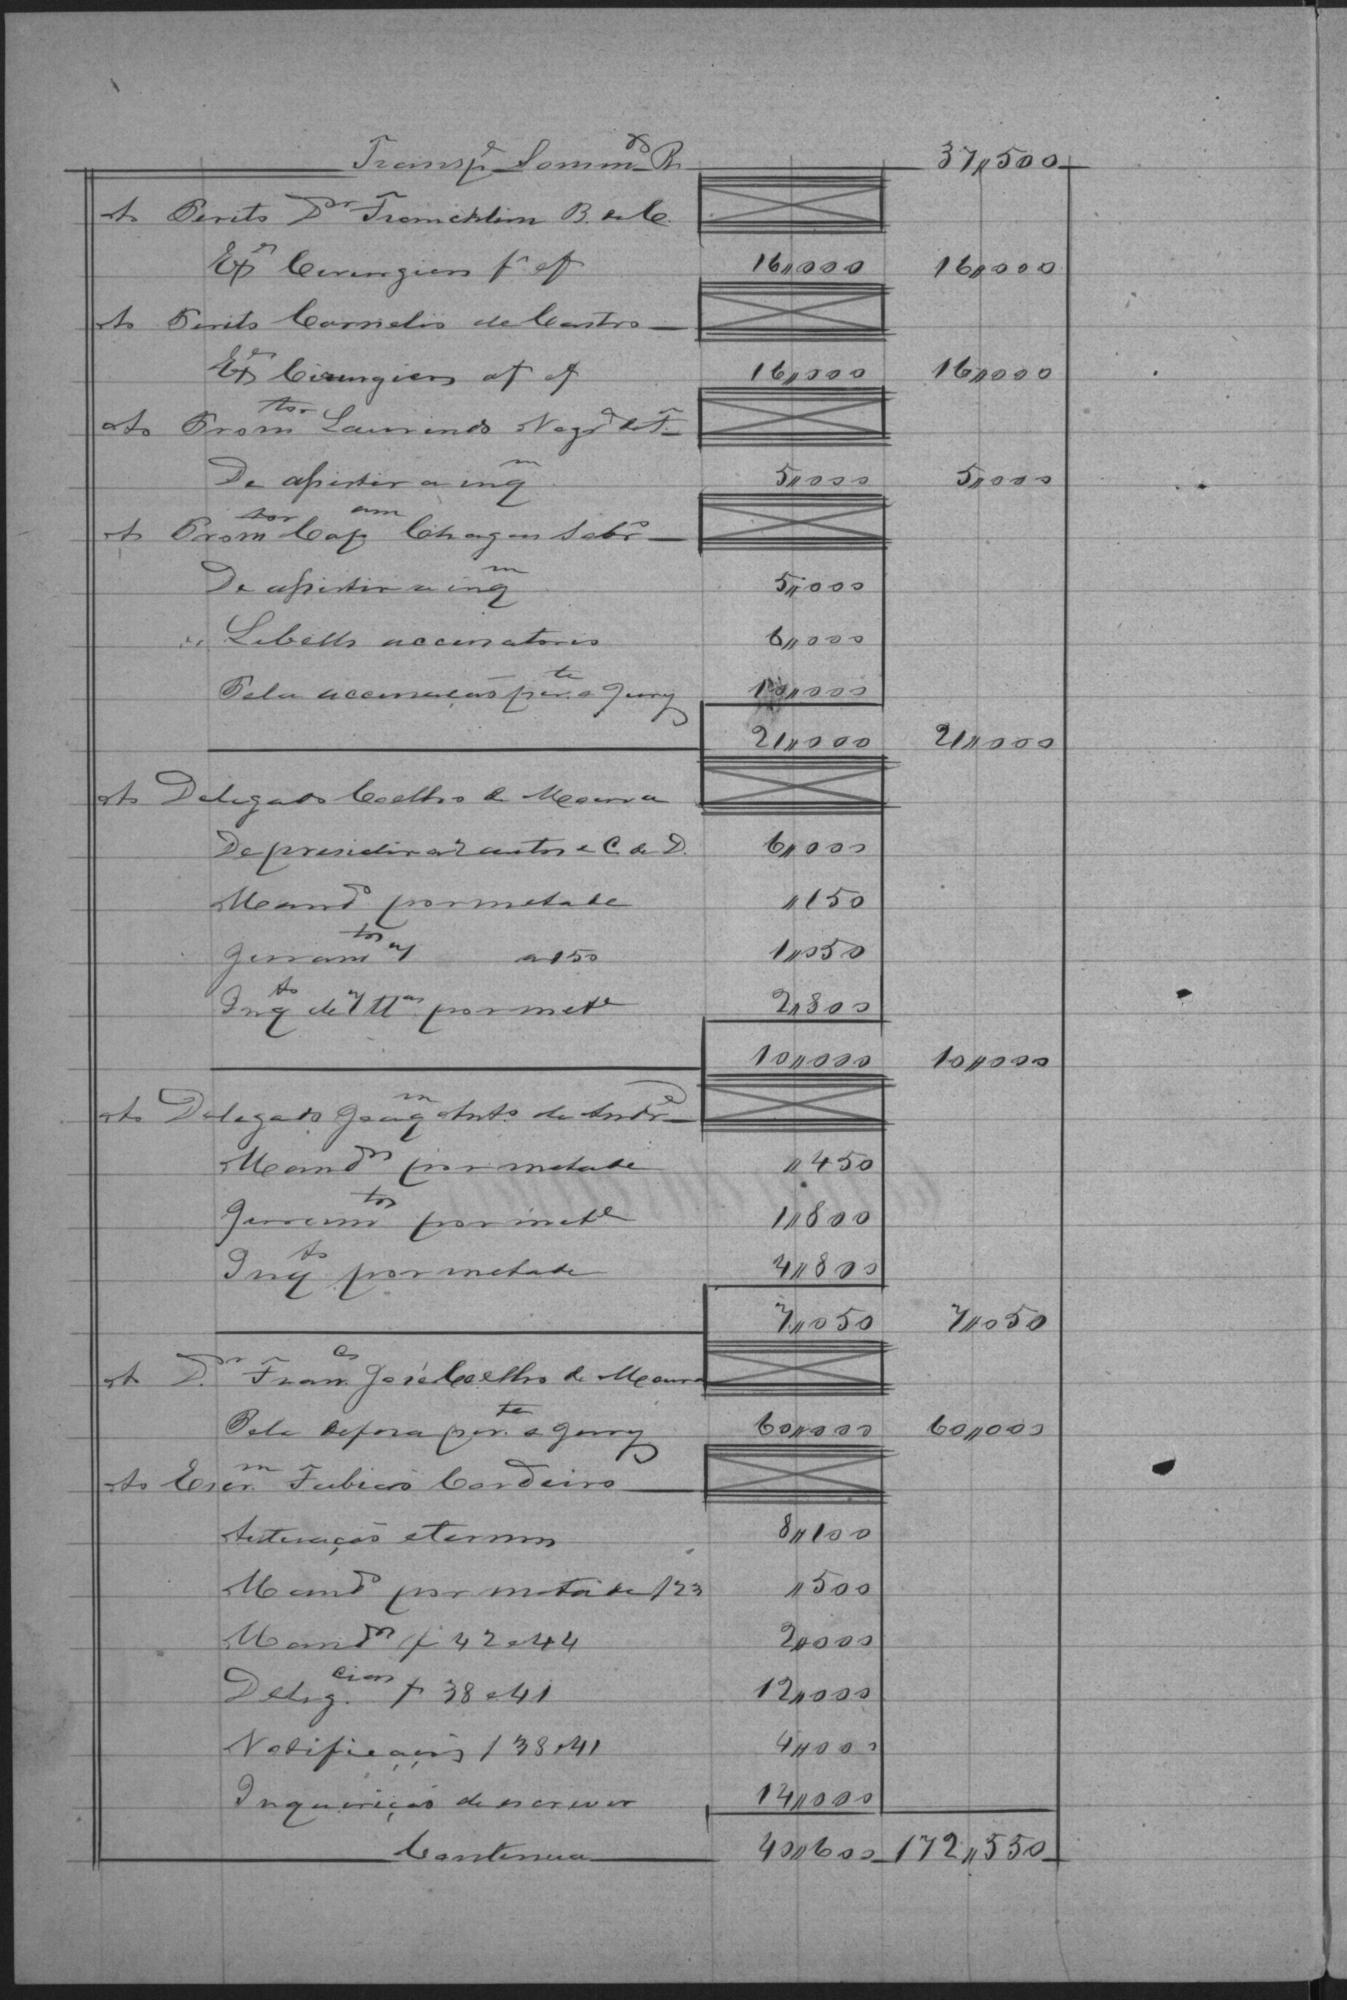 Transpe Sommdo Rs 37,,500
Ao Perito Dr Francklim B. de C.
Exe Cirurgico f ef 16,,000 16,,000
Ao Perito Cornelio de Castro
Exe Cirurgico af ef 16,,000 16,,000
Ao Promtor Laurindo
De assistir a inqm 5,,000 5,,000
Ao Promtor Capam Chagas Sobro
De assistir a inqm 5,,000
" Libello accusatorio 6,,000
Pela accusação perte o jury 10,,000
21,,000 21,,000
Ao Delegado Coelho de Moura
De presidir a 2 autos e C. de D. 6,,000
Mando por metade ,,150
Juramtos 7 a 150 1,,050
Inqto de 7 ttas por mete 2,,800
10,,000 10,,000
Ao Delegado Joaqm Anto de Andre
Mandos por metade ,,450
Juramtos por mete 1,,800
Inqto por metade 4,,800
7,,050 7,,050
Ao Dr Franco José Coelho de Moura
Pela defesa perte o jury 60,,000 60,,000
Ao Escrm Fabicio Cordeiro
Autuação e termos 8,,100
Mando por metade f 23 ,,500
Mandos f 42 e 44 2,,000
Deligcias f 38 e 41 12,,000
Notificações f 38 e 41 4,,000
Inquirição de escrever 14,,000
Continua 40,,600 172,,550